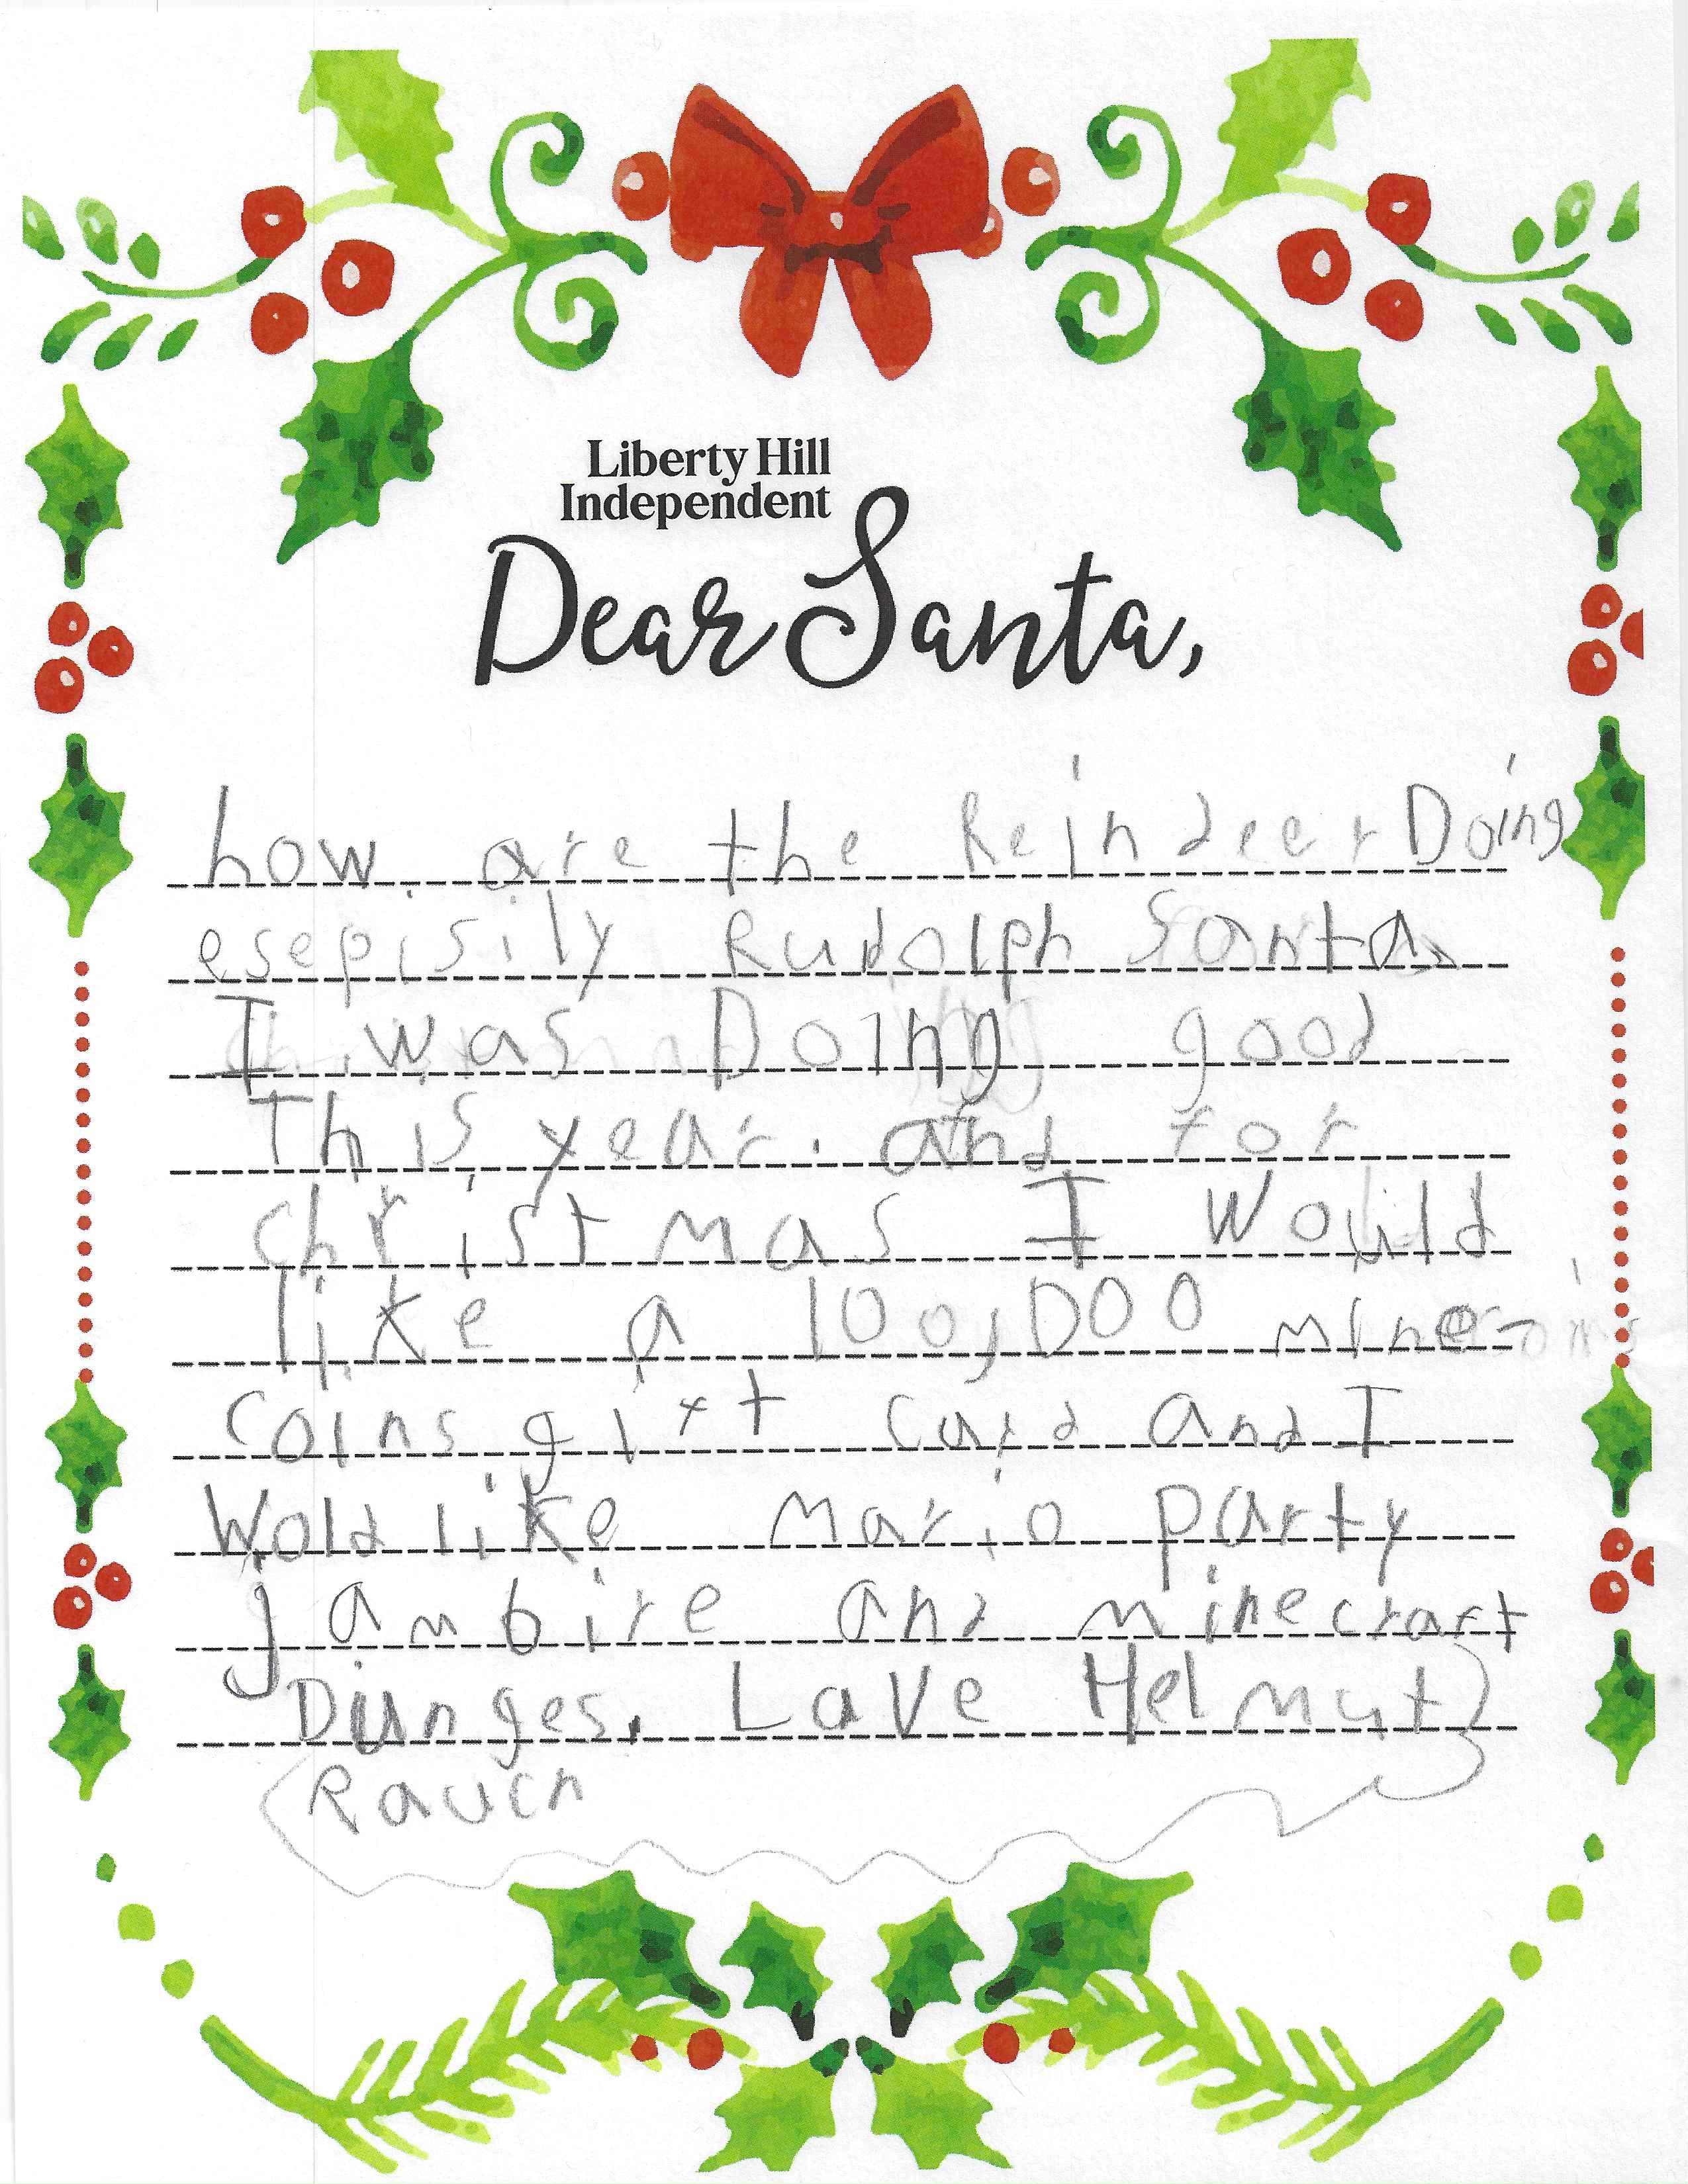 Liberty Hill
Independent
Dear Santa,
how are the Reindeer Doing
esepisily Rudolph Santa,
I was Doing good
This year. and for
christmas I would
like a 100,000 mine-
coins gift card and I
Wold like Mario party
jambire and minecraft
Dunges. Lave Helmut
Rauch